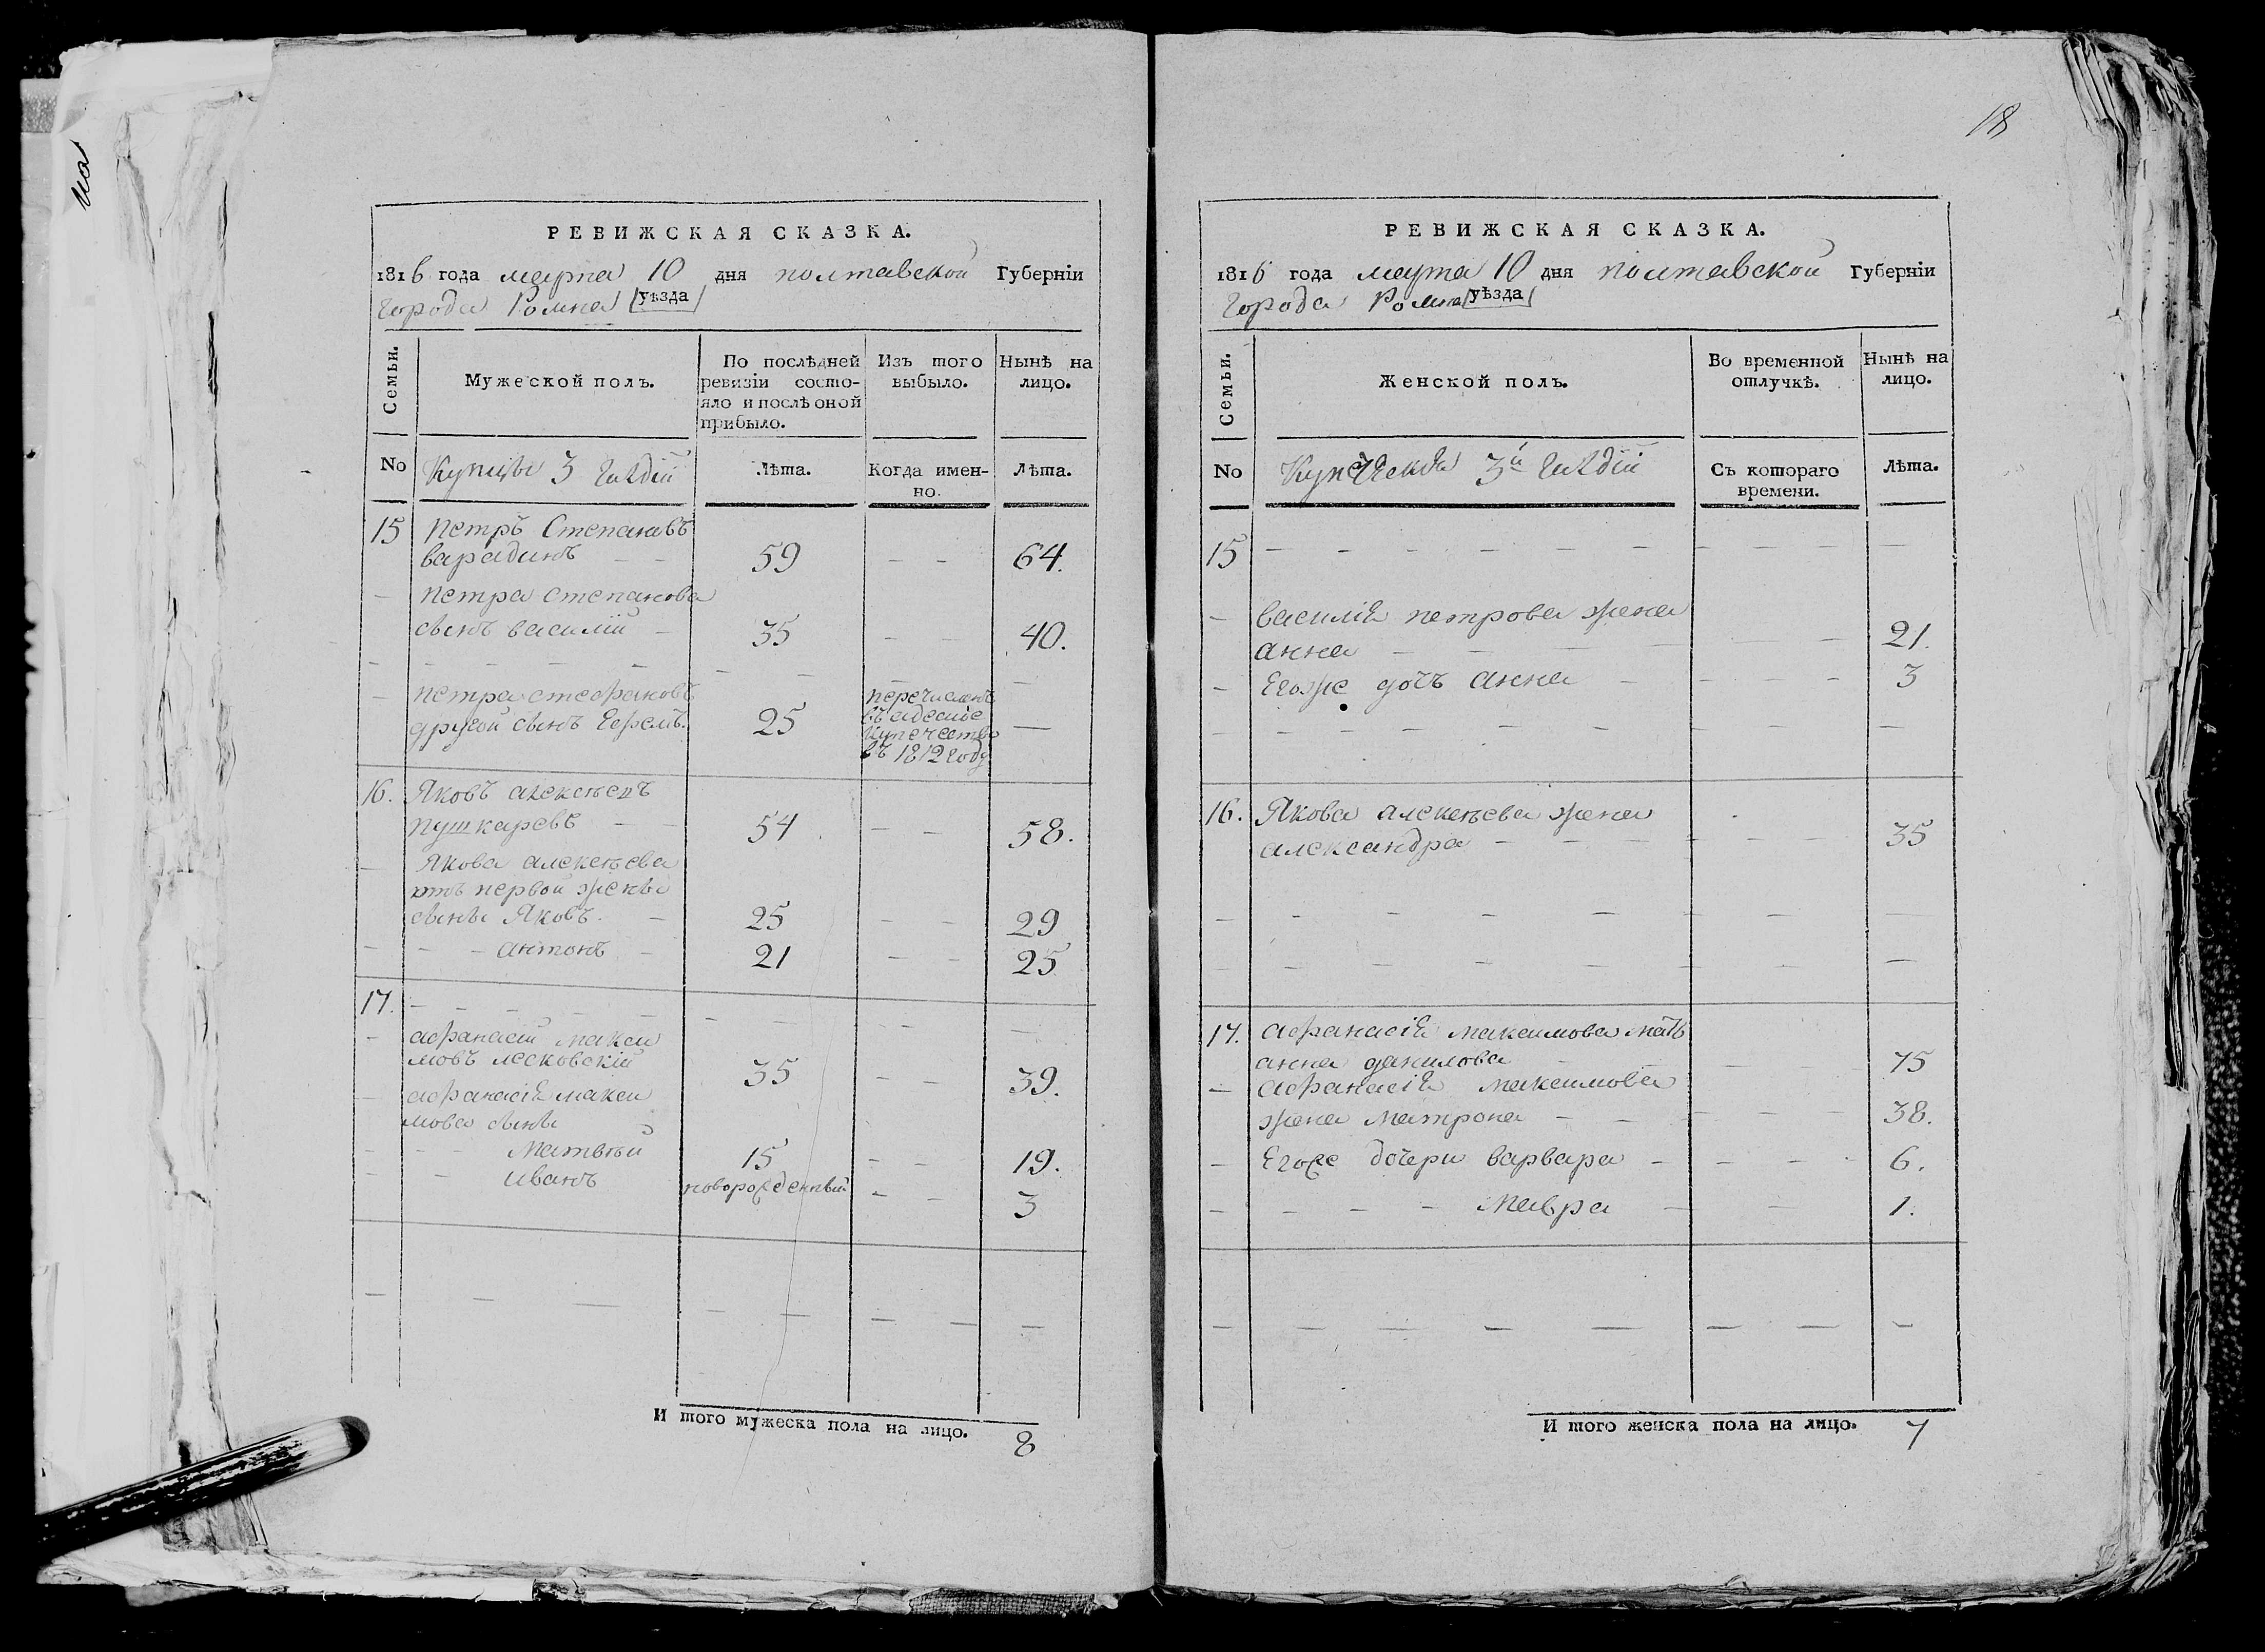 РЕВИЖСКАЯ СКАЗКА.
1816 года марта 10 дня полтавской Губерніи
города Ромна уѣзда
Семьи.
Мужеской полъ.
По послѣдней ревизіи состо-
яло и послѣ оной
прибыло.
Изъ того
выбыло.
Нынѣ на
лицо.
No Купцы 3 гилдіи
Лѣта.
Когда имен-
но.
Лѣта.
15 петръ Степановъ
варадинъ — — 59 — — 64.
— петра степанова
сынъ василій — 35 — — 40.
— петра стефановъ
другой сынъ Ефремъ. 25 —
перечисленъ
въ адеское
купечество
въ 1812 году
16. Яковъ алексѣевъ
пушкаревъ — — 54 — — 58.
— Якова алексѣева
отъ первой жены
сыны Яковъ. — 25 — — 29
— — — антонъ — 21 — — 25
17. — — — — —
— афанасій макси
мовъ лесковскій 35 — — 39.
— афанасія макси
мова сыны
— — — Матвѣй 15 — — 19.
— — иванъ новорожденный — — 3
И того мужеска пола на лицо. 8
18
РЕВИЖСКАЯ СКАЗКА.
1816 года марта 10 дня полтавской Губерніи
города Ромна уѣзда
Семьи.
Женской полъ.
Во временной
отлучкѣ.
Нынѣ на
лицо.
No Купеческа 3й гилдіи
Съ котораго
времени.
Лѣта.
15 — — — — — —
— василія петрова жена
анна — — — 21.
— Егоже дочъ анна — — — — 3
16. Якова алексѣева жена
александра — — — — — 35
17. афанасія максимова мать
анна данилова — — 75
— афанасія максимова
жена матрона — — — — — 38.
— Егоже дочери варвара — — — 6.
— — — — Мавра — — 1.
И того женска пола на лицо. 7